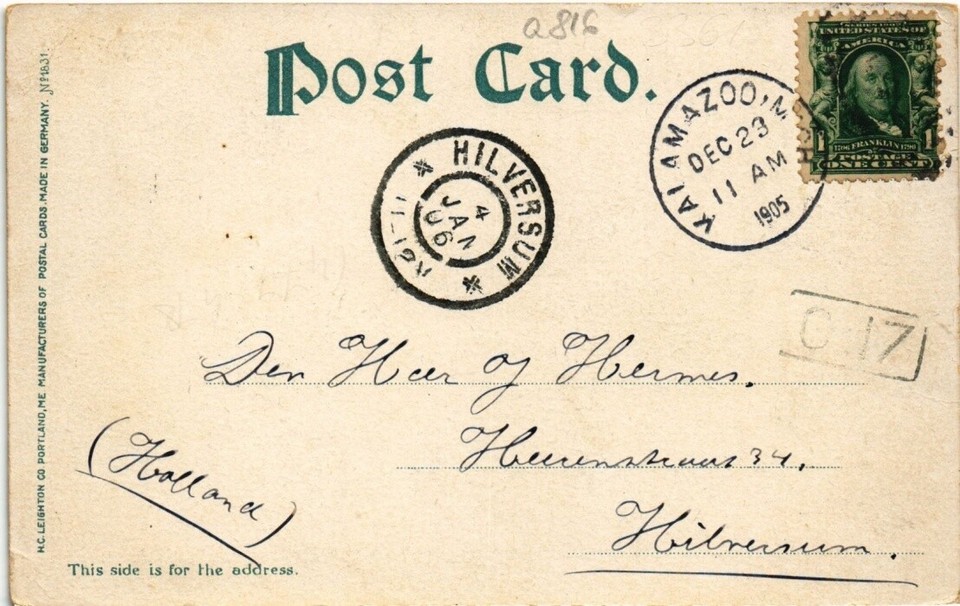 a816
Post Card.
SERIES 1902
UNITED STATES OF
AMERICA
1
1706 FRANKLIN 1790
1
POSTAGE
ONE CENT
KALAMAZOO, MICH
DEC 23
11 AM
1905
HILVERSUM
4
JAN
06
C 17
Den Heer J Hermes.
Heerenstraat 34.
Hilversum.
(Holland)
This side is for the address.
H.C. LEIGHTON CO PORTLAND, ME MANUFACTURERS OF POSTAL CARDS. MADE IN GERMANY. No 1831.